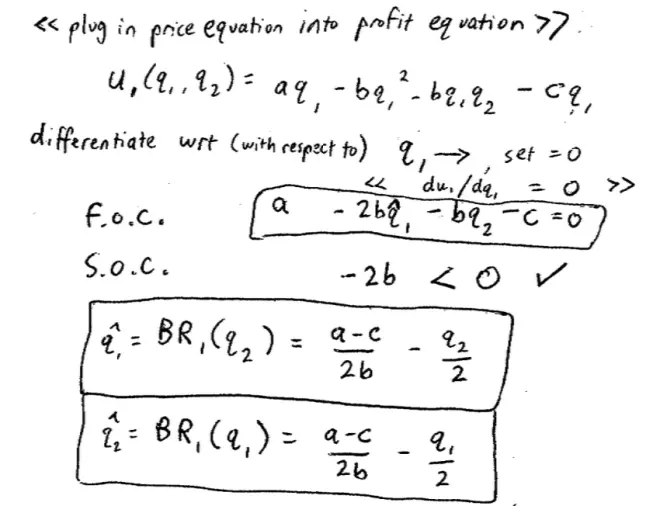 << plug in price equation into profit equation >>.
u₁(q₁, q₂) = aq₁ - bq₁² - bq₁q₂ - cq₁
differentiate wrt (with respect to) q₁ → , set = 0
<< du₁/dq₁ = 0 >>
F.O.C. a - 2bq̂₁ - bq₂ - c = 0
S.O.C. -2b < 0 ✓
q̂₁ = BR₁(q₂) = (a-c)/2b - q₂/2
q̂₂ = BR₁(q₁) = (a-c)/2b - q₁/2